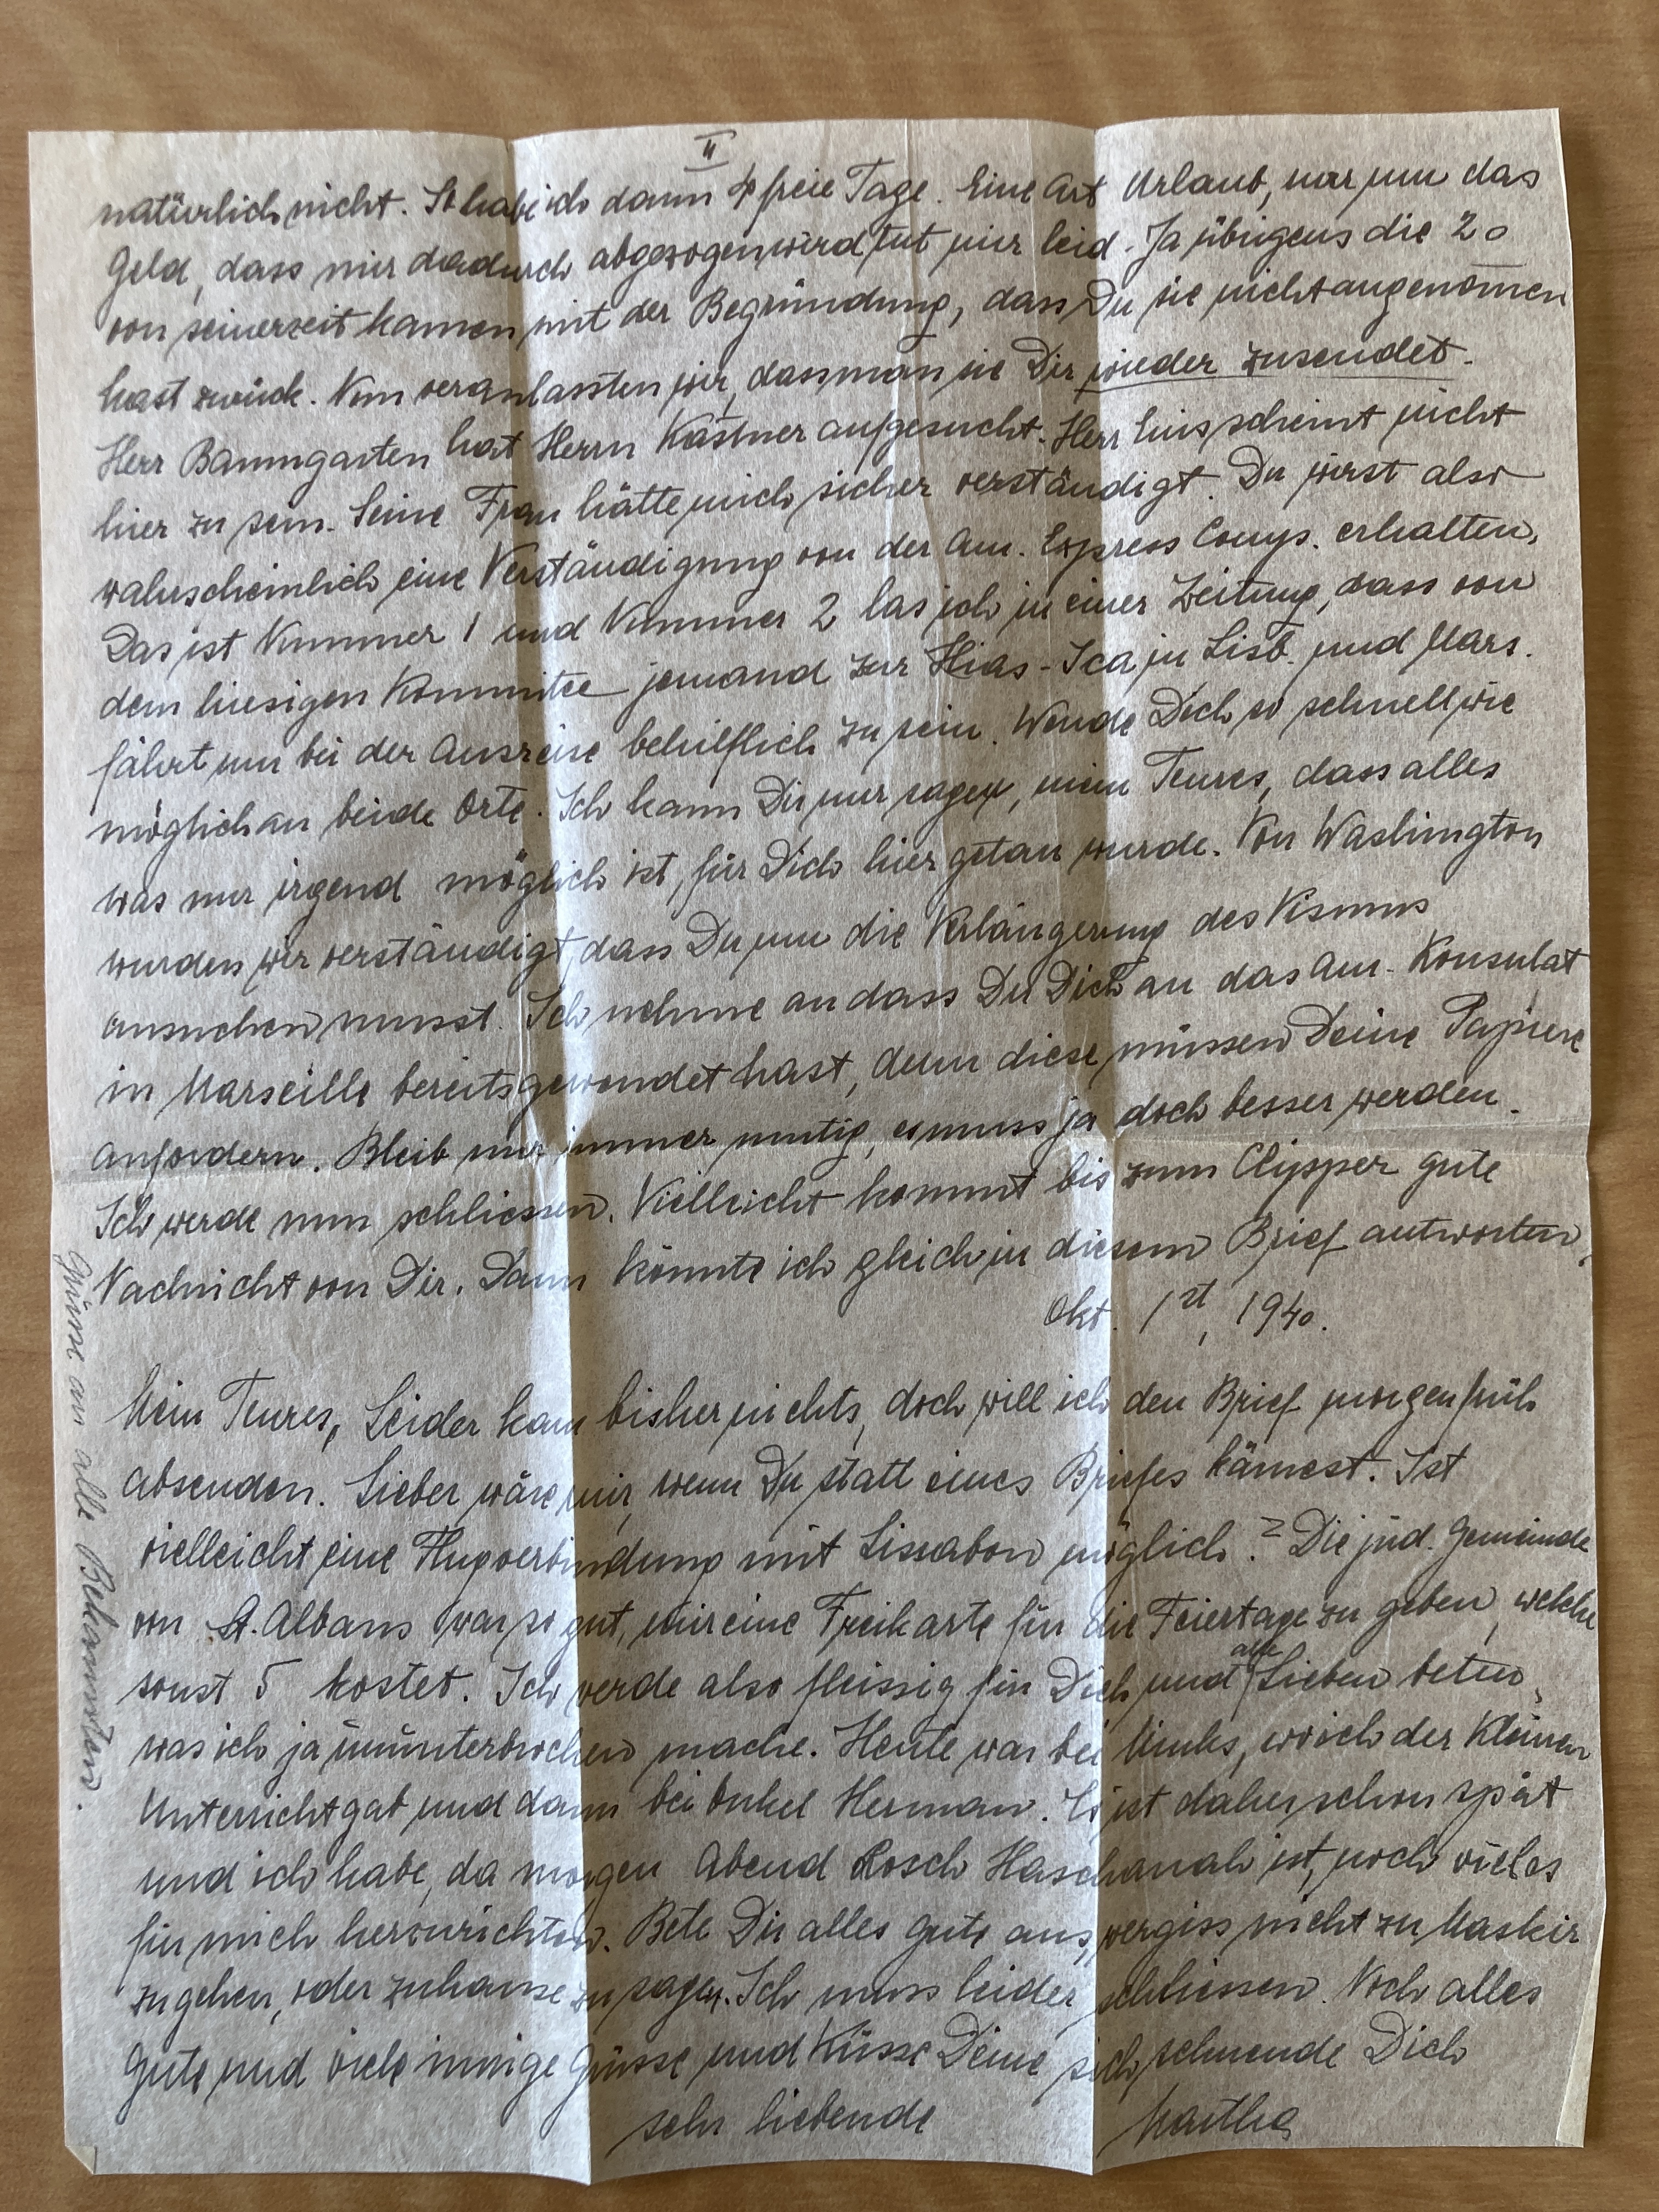 II
natürlich nicht. So habe ich dann 4 freie Tage. Eine Art Urlaub, nur um das
Geld, dass mir dadurch abgezogen wird tut mir leid. Ja übrigens die 20
von seinerzeit kamen mit der Begründung, dass Du sie nicht angenom̅en
hast zurück. Nun veranlassten wir, dass man sie Dir wieder zusendet.
Herr Baumgarten hat Herrn Kastner aufgesucht. Herr scheint nicht
hier zu sein. Seine Frau hätte mich sicher verständigt. Du wirst also
wahrscheinlich eine Verständigung von der Am. Express Comp. erhalten,
Das ist Nummer 1 und Nummer 2 las ich in einer Zeitung, dass von
dem hiesigen Kommitee jemand zur Hias-Ica in Lisb. und Mars.
fährt um bei der Ausreise behilflich zu sein. Wende Dich so schnell wie
möglich an beide Orte. Ich kann Dir nur sagen, mein Teures, dass alles
was nur irgend möglich ist, für Dich hier getan wurde. Von Washington
wurden wir verständigt dass Du um die Verlängerung des Visums
ansuchen musst. Ich nehme an dass Du Dich an das Am. Konsulat
in Marseille bereits gewendet hast, denn diese müssen Deine Papiere
anfordern. Bleib mir immer mutig, es muss ja doch besser werden.
Ich werde nun schliessen. Vielleicht kommt bis zum Clipper gute
Nachricht von Dir. Dann könnte ich gleich in diesem Brief antworten.
Okt. 1st, 1940.
Mein Teures, Leider kam bisher nichts, doch will ich den Brief morgen früh
absenden. Lieber wäre mir, wenn Du statt eines Briefes kämest. Ist
vielleicht eine Flugverbindung mit Lissabon möglich? Die jüd. Gemeinde
von St. Albans war so gut, mir eine Freikarte für die Feiertage zu geben, welche
sonst 5 kostet. Ich werde also fleissig für Dich und alle Lieben beten,
was ich ja ununterbrochen mache. Heute war bei , wo ich der Kleinen
Unterricht gab und dann bei Onkel Herman. Es ist daher schon spät
und ich habe, da morgen Abend Rosch Haschanah ist, noch vieles
für mich herzurichten. Bete Dir alles gute aus, vergiss nicht zu Maskir
zu gehen, oder zuhause zu sagen. Ich muss leider schliessen. Noch alles
Gute und viele innige Grüsse und Küsse Deine sich sehnende Dich
sehr liebende Martha
Grüsse an alle Bekannten.